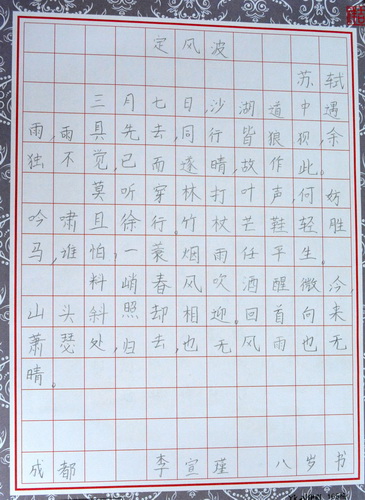 定风波
苏轼
三月七日,沙湖道中遇
雨,雨具先去,同行皆狼狈,余
独不觉,已而遂晴,故作此。
莫听穿林打叶声,何妨
吟啸且徐行。竹杖芒鞋轻胜
马,谁怕,一蓑烟雨任平生。
料峭春风吹酒醒微冷,
山头斜照却相迎。回首向来
萧瑟处,归去,也无风雨也无
晴。
成都 李宣瑾 八岁书